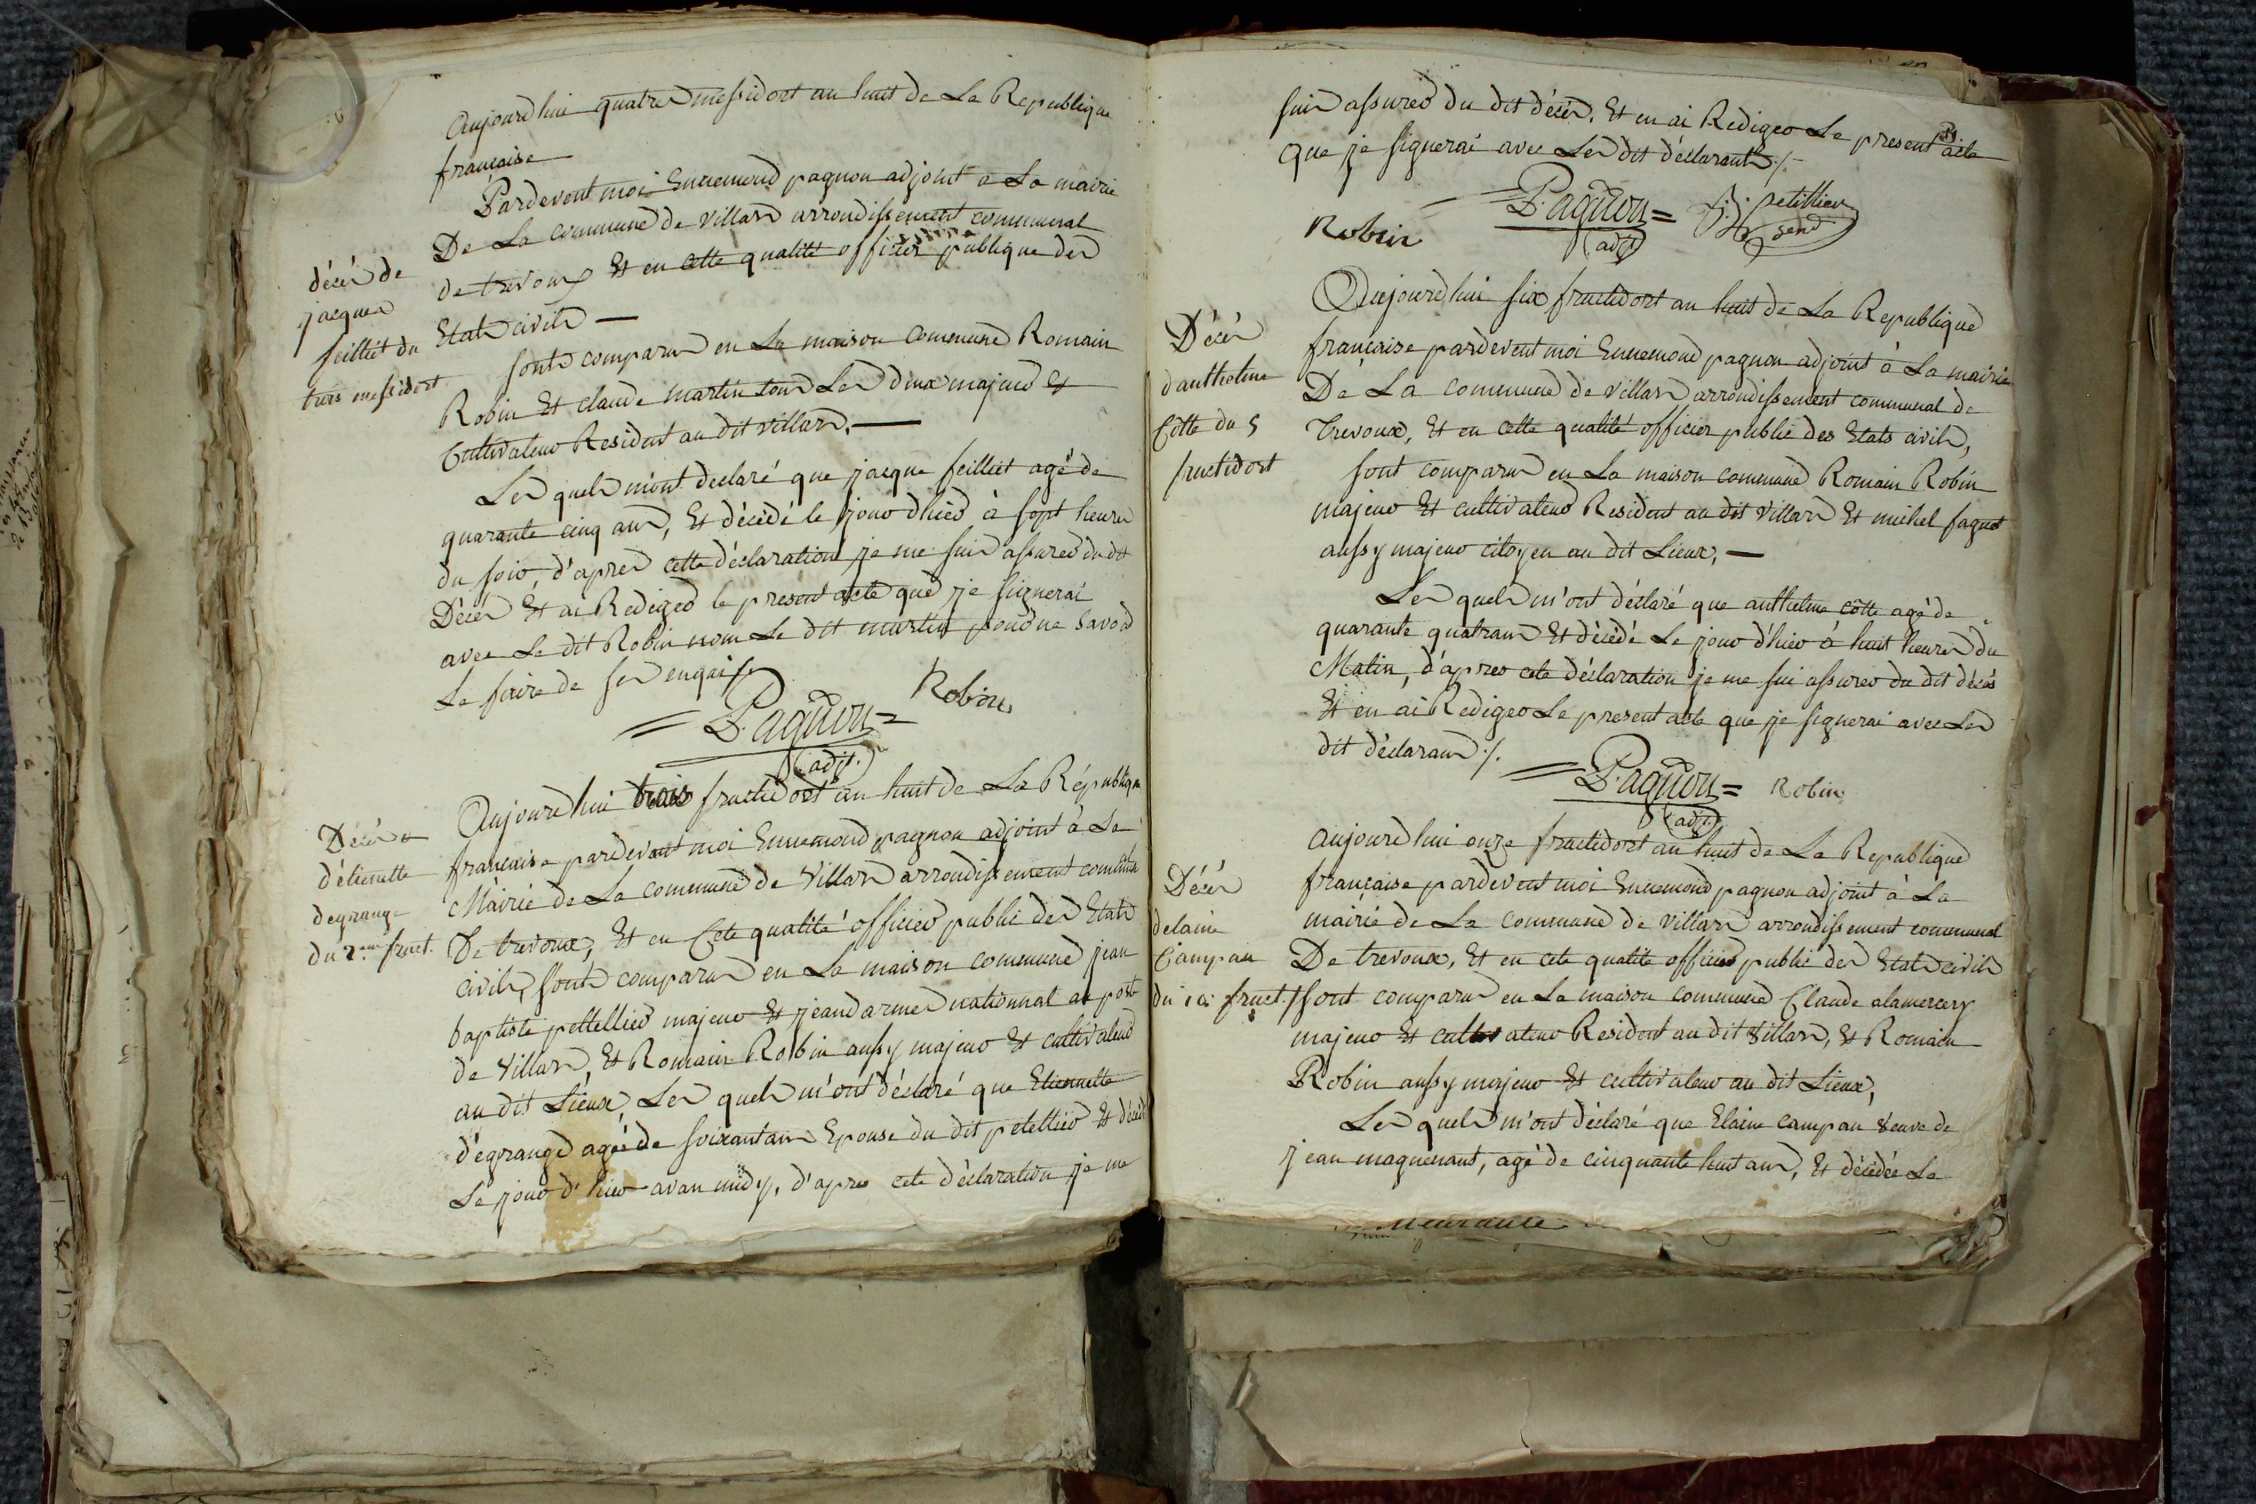 Aujourdhui quatre messidort an huit de La Republique
française
Pardevent moi Ennemond pagnon adjoint a La mairie
De La commune de villars arrondissement communal
de trevoux Et en cette qualité officier publique des
Etats civils —
décès de
jacques
feilliet du
trois messidort
sont comparus en La maison commune Romain
Robin Et claude martin tous Les deux majeurs Et
Cultivateur Resident au dit villars. —
Les quels mont declaré que jacque feilliet agé de
quarante cinq ans, Et décédé le jour dhier à sept heures
du soir, d'apres cette déclaration je me suis assurer du dit
Décès Et ai Rediger le present acte que je signerai
avec Le dit Robin non Le dit martin pour ne savoir
Le faire de ses enquis
= Pagnon = Robin
(adjt.)
Aujourdhui trois fructidort an huit de La Républiqu
française pardevant moi Ennemond pagnon adjoint à La
Mairie de La commune de Villars arrondissement communa
De trevoux, Et en Cete qualité officier public des Etats
civils, sont comparus en La maison commune jean
baptiste pettellier majeur Et jeandarme nationnal au poste
de Villars, Et Romain Robin aussy majeur Et cultivateur
au dit Lieux, Les quels m'ont déclaré que Etiennette
d'égrange agée de soixantans Epouse du dit petellier Et décéd
Le jour d'hier avan midy, d'apres cete déclaration je me
Décès
d'étienette
degrange
du 2.eme fruct.
suis assurer du dit décès. Et en ai Rediger Le present acte
que je signerai avec Les dit déclarants ./.
Robin = Pagnon = J: B: petillier
(adjt) gend
Décès
dantholme
Cotte du 5
fructidort
Aujourdhui six fructidort an huit de La Republique
française pardevent moi Ennemond pagnon adjoint à La mairie
De La commune de villars arrondissement communal de
Trevoux, Et en cette qualité officier public des Etats civils,
sont comparus en La maison commune Romain Robin
majeur Et cultivateur Resident au dit Villars Et michel faguet
aussy majeur citoyen au dit Lieux, —
Les quels m'ont déclaré que anthelme côtte agé de
quarante quatrans Et décédé Le jour d'hier à huit heures du
Matin, d'apres cete déclaration je me sui assurer du dit décès
Et en ai Rediger Le present acte que je signerai avec Les
dit déclarans ./.
= Pagnon = Robin
(adjt)
Décès
delaine
Campan
du 10 fruct.
aujourdhui onze fructidort an huit de La Republique
française pardevent moi Ennemond pagnon adjoint à La
mairie de La commune de villars arrondissement communal
De trevoux, Et en cete qualité officier public des Etats civils
sont comparus en La maison commune Claude alamercery
majeur Et cultivateur Resident au dit villars, Et Romain
Robin aussy majeur Et cultivateur au dit Lieux,
Les quels m'ont déclaré que Elaine campan veuve de
jean maguenant, agé de cinquante huit ans, Et décédée Le